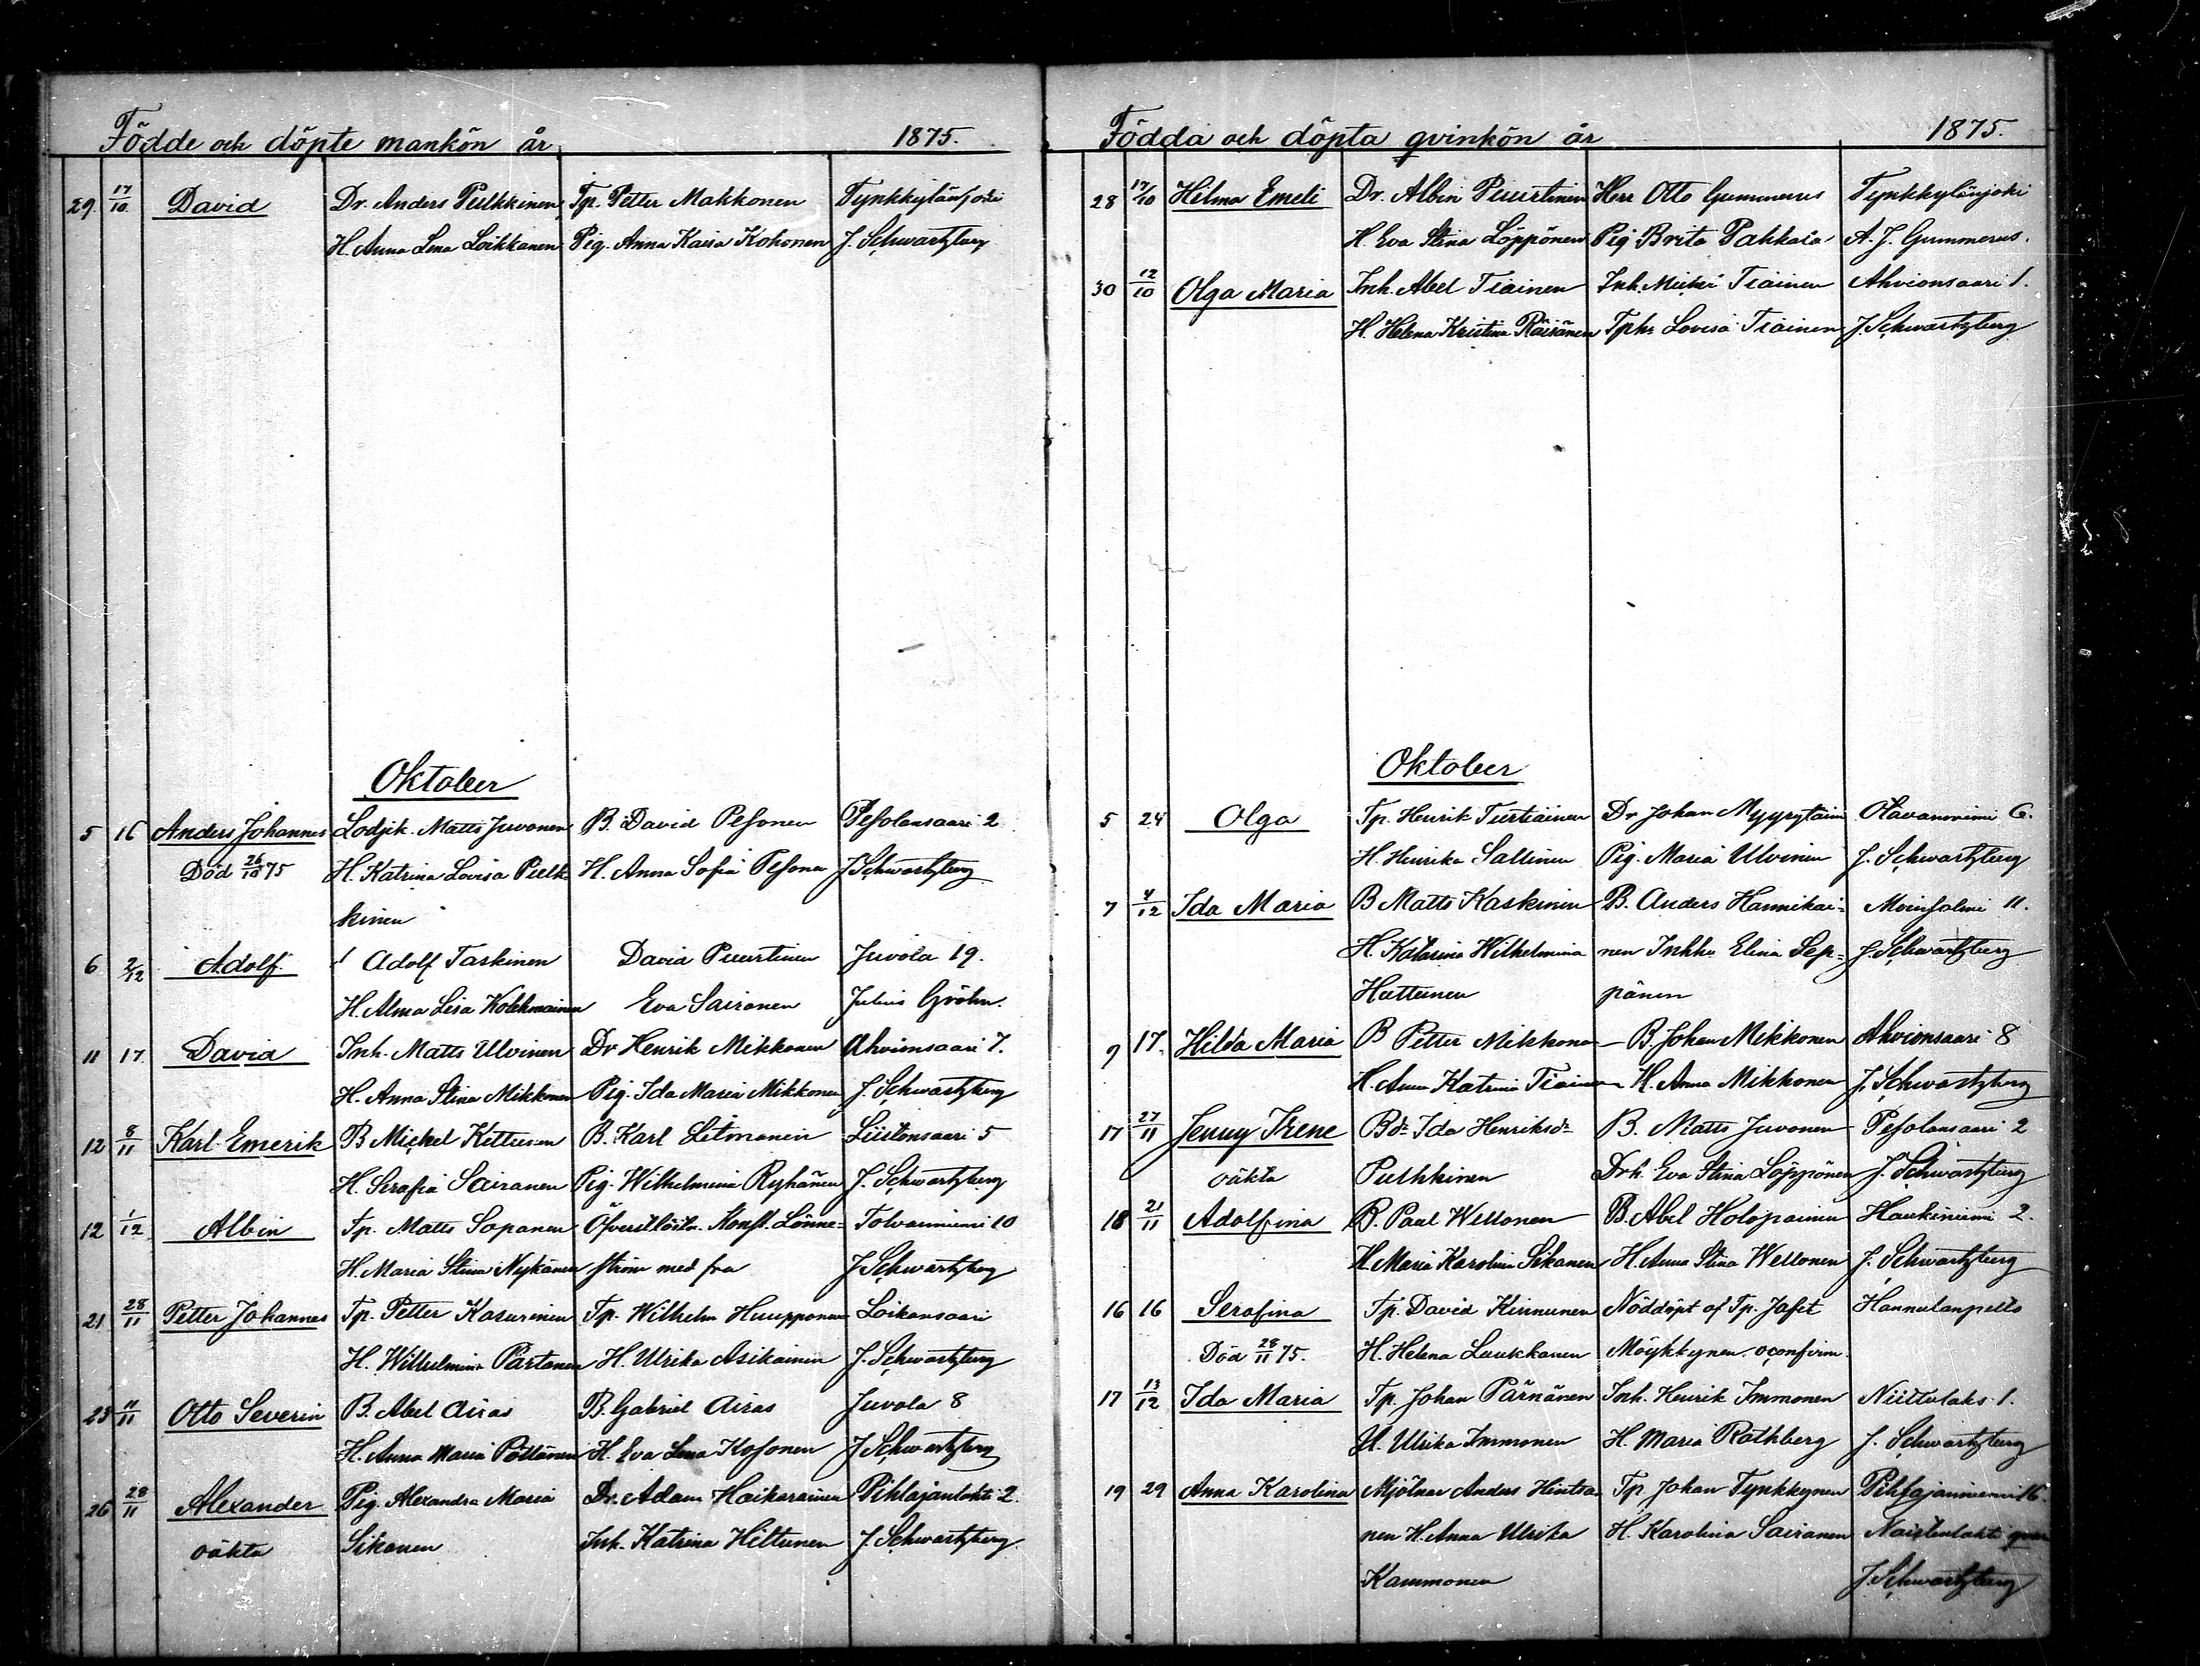 Födde och döpte mankön år 1875.
29. 17/10. David Dr. Anders Pulkkinen Tp. Petter Makkonen Tynkkylänjoki
H. Anna Lena Loikkanen Pig. Anna Kaisa Kohonen J. Schwartzberg
Oktober
5 16 Anders Johannes Lodjik. Matts Juvonen B. David Pesonen Pesolansaari 2
Död 26/10 75 H. Katrina Lovisa Pulk- H. Anna Sofia Pesonen J. Schwartzberg
kinen
6 2/12 Adolf. Adolf Taskinen David Puurtinen Juvola 19.
H. Alma Lisa Kolehmainen Eva Sairanen Julius Gröhn.
11 17. David Inh. Matts Ulvinen Dr Henrik Mikkonen Ahvionsaari 7.
H. Anna Stina Mikkonen Pig. Ida Maria Mikkonen J. Schwartzberg
12 8/11 Karl Emerik B Mickel Kettunen B. Karl Litmanen Liistonsaari 5
H. Serafia Sairanen Pig. Wilhelmina Ryhänen J. Schwartzberg
12 1/12 Albin Tp. Matts Sopanen Öfverstlöitn. Konst. Lönne- Tolvanniemi 10
H. Maria Stina Nykänen ström med fru J. Schwartzberg
21 28/11 Petter Johannes Tp. Petter Kasurinen Tp. Wilhelm Huupponen Loikansaari
H. Wilhelmina Partanen H. Ulrika Asikainen J. Schwartzberg
23 11/11 Otto Severin B. Abel Airas B. Gabriel Airas Juvola 8
H. Anna Maria Pöllänen H. Eva Lena Kosonen J. Schwartzberg
26 28/11 Alexander Pig. Alexandra Maria Dr. Adam Haikarainen Pihlajanlahti 2.
oäkta Sikanen Inh. Katrina Hiltunen J. Schwartzberg
Födda och döpta qvinkön år 1875.
28 17/10 Hilma Emeli Dr. Albin Puurtinen Herr Otto Gummerus Tynkkylänjoki
H Eva Stina Löppönen Pig Brita Pakkala A. J. Gummerus.
30 12/10 Olga Maria Inh. Abel Tiainen Inh. Mickel Tiainen Ahvionsaari 1.
H. Helena Kristina Räisänen Tphr Lovisa Tiainen J. Schwartzberg
Oktober
5 24 Olga Tp. Henrik Turtiainen Dr Johan Myyryläinen 6.
H. Henrika Sallinen Pig. Maria Ulvinen J. Schwartzberg
7 4/12 Ida Maria B Matts Kaskinen B. Anders Hannikai- Moinsalmi 11.
H. Katarina Wilhelmina nen Inhhu Elina Sep- J. Schwartzberg
Huttunen pänen
9 17. Hilda Maria B Petter Mikkonen B. Johan Mikkonen Ahvionsaari 8
H. Anna Katrina Tiainen H. Anna Mikkonen J. Schwartzberg
17 27/11 Jenny Irene Bdr Ida Henriksdr B. Matts Juvonen Pesolansaari 2
oäkta Pulkkinen Drh. Eva Stina Löppönen J. Schwartzberg
18 21/11 Adolfina B. Paul Wellonen B. Abel Holopainen Haukiniemi 2.
H. Maria Karolina Sikanen H. Anna Stina Wellonen J. Schwartzberg
16 16 Serafina Tp. David Kinnunen Nöddöpt af Tp. Jafet Hannulanpelto
Död 28/11 75. H. Helena Laukkanen Möykkynen. oconfirm.
17 13/12 Ida Maria Tp. Johan Pärnänen Inh. Henrik Immonen Niittulaks 1.
H. Ulrika Immonen H. Maria Rothberg J. Schwartzberg
19 29 Anna Karolina Mjölnar Anders Hintsa- Tp. Johan Tynkkynen Pihlajaniemi 16.
nen H. Anna Ulrika H. Karolina Sairanen Naistenlahti qvarn
Kammonen J. Schwartzberg